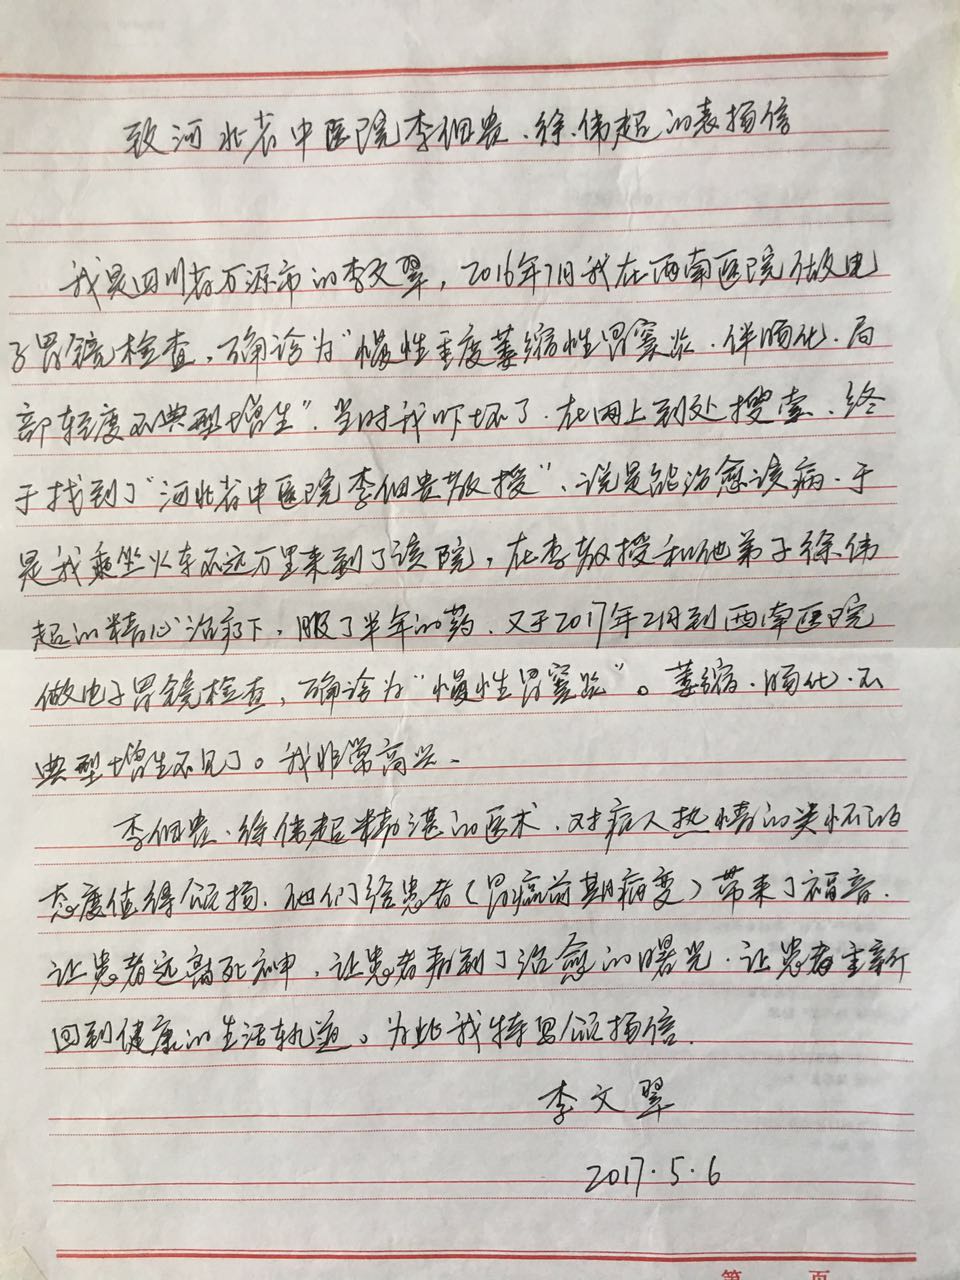 致河北省中医院李佃贵、徐伟超的表扬信
我是四川省万源市的李文翠，2016年7月我在西南医院做电
子胃镜检查，确诊为“慢性重度萎缩性胃窦炎、伴肠化、局
部轻度不典型增生”。当时我吓坏了．在网上到处搜索、终
于找到了“河北省中医院李佃贵教授”、说是能治愈该病．于
是我乘坐火车不远万里来到了该院，在李教授和他弟子徐伟
超的精心治疗下，服了半年的药、又于2017年2月到西南医院
做电子胃镜检查，确诊为“慢性胃窦炎”。萎缩、肠化、不
典型增生不见了。我非常高兴、
李佃贵、徐伟超精湛的医术、对病人热情的关怀的
态度值得颂扬．他们给患者（胃癌前期病变）带来了福音．
让患者远离死神，让患者看到了治愈的曙光．让患者重新
回到健康的生活轨道。为此我特写颂扬信．
李文翠
2017.5.6
第 页